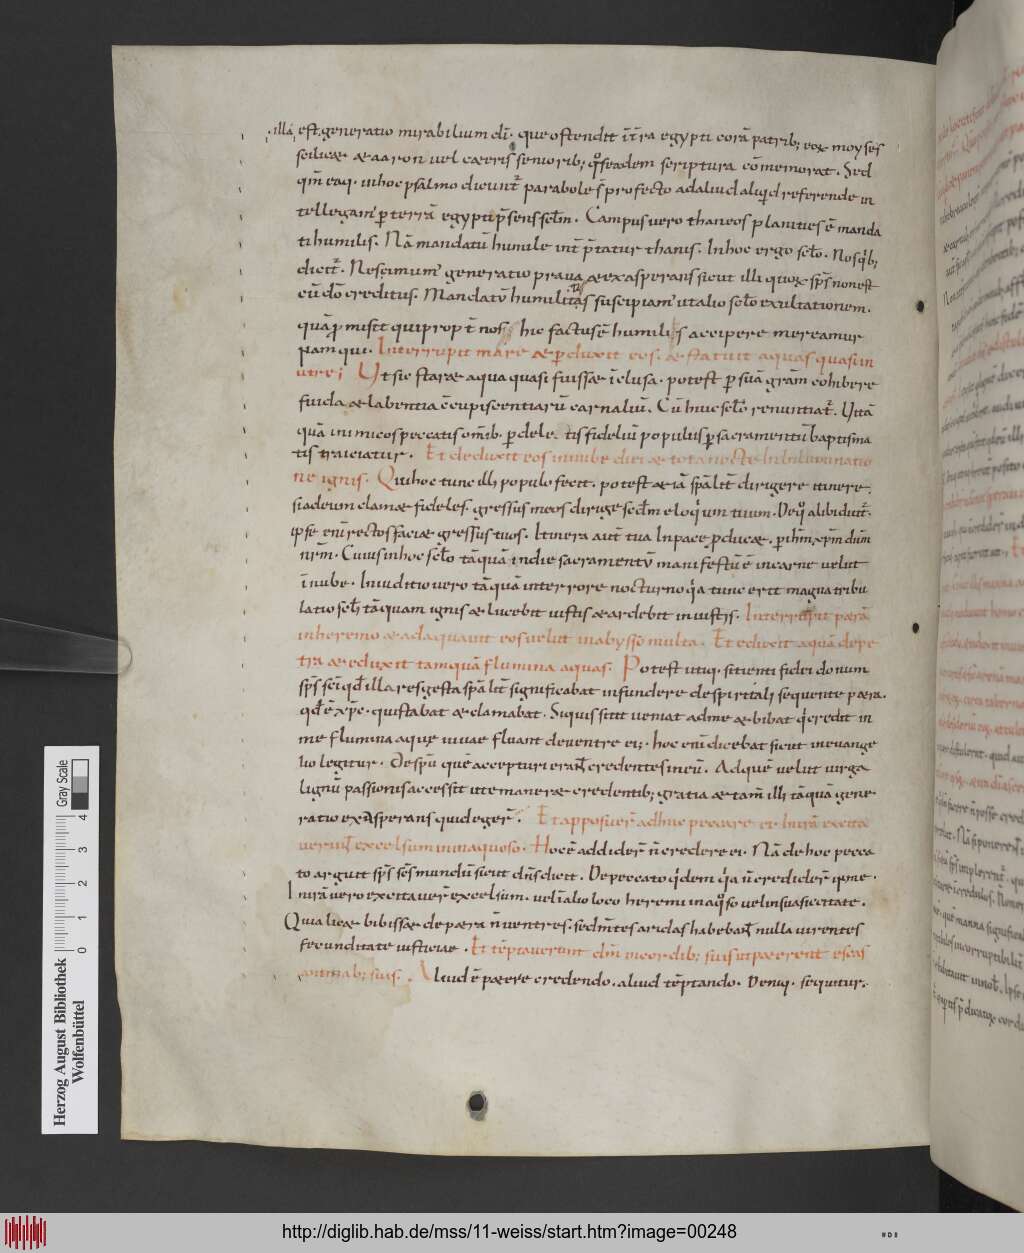 illā est generatio mirabilium dī. que ostendit ī tr̄a egypti corā patrib; eox moyses
scilicæ & aaron uel cæteris seniorib; qd̄ eadem scriptura cōmemorat. Sed
qm̄ eaq. inhoc psalmo dicunt̄ parabole s̄ profecto adaliud aliqd referende in
tellegam' p̱ terrā egypti p̄sens sc̄lm. Campus uero thaneos planities ē manda
ti humilis. Nā mandatū humile int̄ p̄tatur thanis. Inhoc ergo sc̄lo. Nosqb;
dicit̄. Ne simus generatio praua & exasperans sicut illi quox sp̄s non est
cū dō creditus. Mandatū humilitas suscipiam' ut alio sc̄lo exultationem.
quā p̱misit qui propt̄ nos hic factus ē humilis accipere mereamur
Nam qui. Interrupit mare & p̱duxit eos. & statuit aquas quasi in
utre; Ut sic staræ aqua quasi fuissæ īclusa. potest p̱ suā gram̄ cohibere
fluida & labentia c̄cupiscentiarū carnaliū. Cū huic sc̄lo renuntiat̄. Ut tā
quā inimicos peccatis om̄ib. p̱dele tis fideliū populus p̱ sacramentū baptisma
tis traiciatur. Et deduxit eos innube diei & tota nocte Inluminatio
ne ignis. Qui hoc tunc illi populo fecit. potest & iā sp̄alit̄ dirigere itinere.
siadeum clamæ fideles. gressus meos dirige sed̄m eloquium tuum. De q̊ alibi dicit̄.
ipse enī rectos faciæ gressus tuos. Itinera aut̄ tua Inpace p̱ducæ. p̱ ih̄m xp̄m dn̄m
nr̄m. Cuius inhoc sc̄lo tāquā indie sacramentū manifestū ē incarne uelut
īnube. Iniuditio uero tāquā interrore nocturno qa tunc erit magna tribu
latio sc̄li tāquam ignis & lucebit iustis & ardebit iniustis. Interrupit petrā
inheremo & adaquauit eos uelut inabysso multa. Et eduxit aquā depe
tra & eduxit tamquā flumina aquas. Potest utiq. sitienti fidei donum
sp̄s sc̄i qd̄ illa res gesta sp̄alit̄ significabat infundere de spiritali sequente petra.
qd̄ ē xp̄c. qui stabat & clamabat. Siquis sitit ueniat adme & bibat q̇ credit in
me flumina aque uiuae fluent deuentre ei;. hoc enī dicebat sicut ineuange
lio legitur. De sp̄u quē accepturi erant credentes ineū. Ad quē uelut uirga
lignū passionis accessit ut emanaræ credentib; gratia & tam̄ illi tāquā gene
ratio exAsperans quid eger̄. Et apposuer̄ adhuc peccare ei Inirā excita
uerunt excelsum in inaquoso. Hoc ē addider̄ n̄ credere ei. Nā de hoc pecca
to arguit sp̄s sc̄s mundū sicut dn̄s dicit. De peccato q̇dem qa n̄ credider̄ in me.
Inirā uero excitauer̄ excelsum. uel īalio loco heremi inaq̊so uel insua siccitate.
Quia licæ bibissæ depetra n̄ uentres. sed m̄tes aridas habebant nulla uirentes
fecunditate iusticiae. Et tēptauerunt dm̄ incordib; suis ut peterent escas
animab; suis. Aliud ē petere credendo. aliud tēptando. Deniq. sequitur.
Herzog August Bibliothek
Wolfenbüttel
Gray Scale
0 1 2 3 4
http://diglib.hab.de/mss/11-weiss/start.htm?image=00248